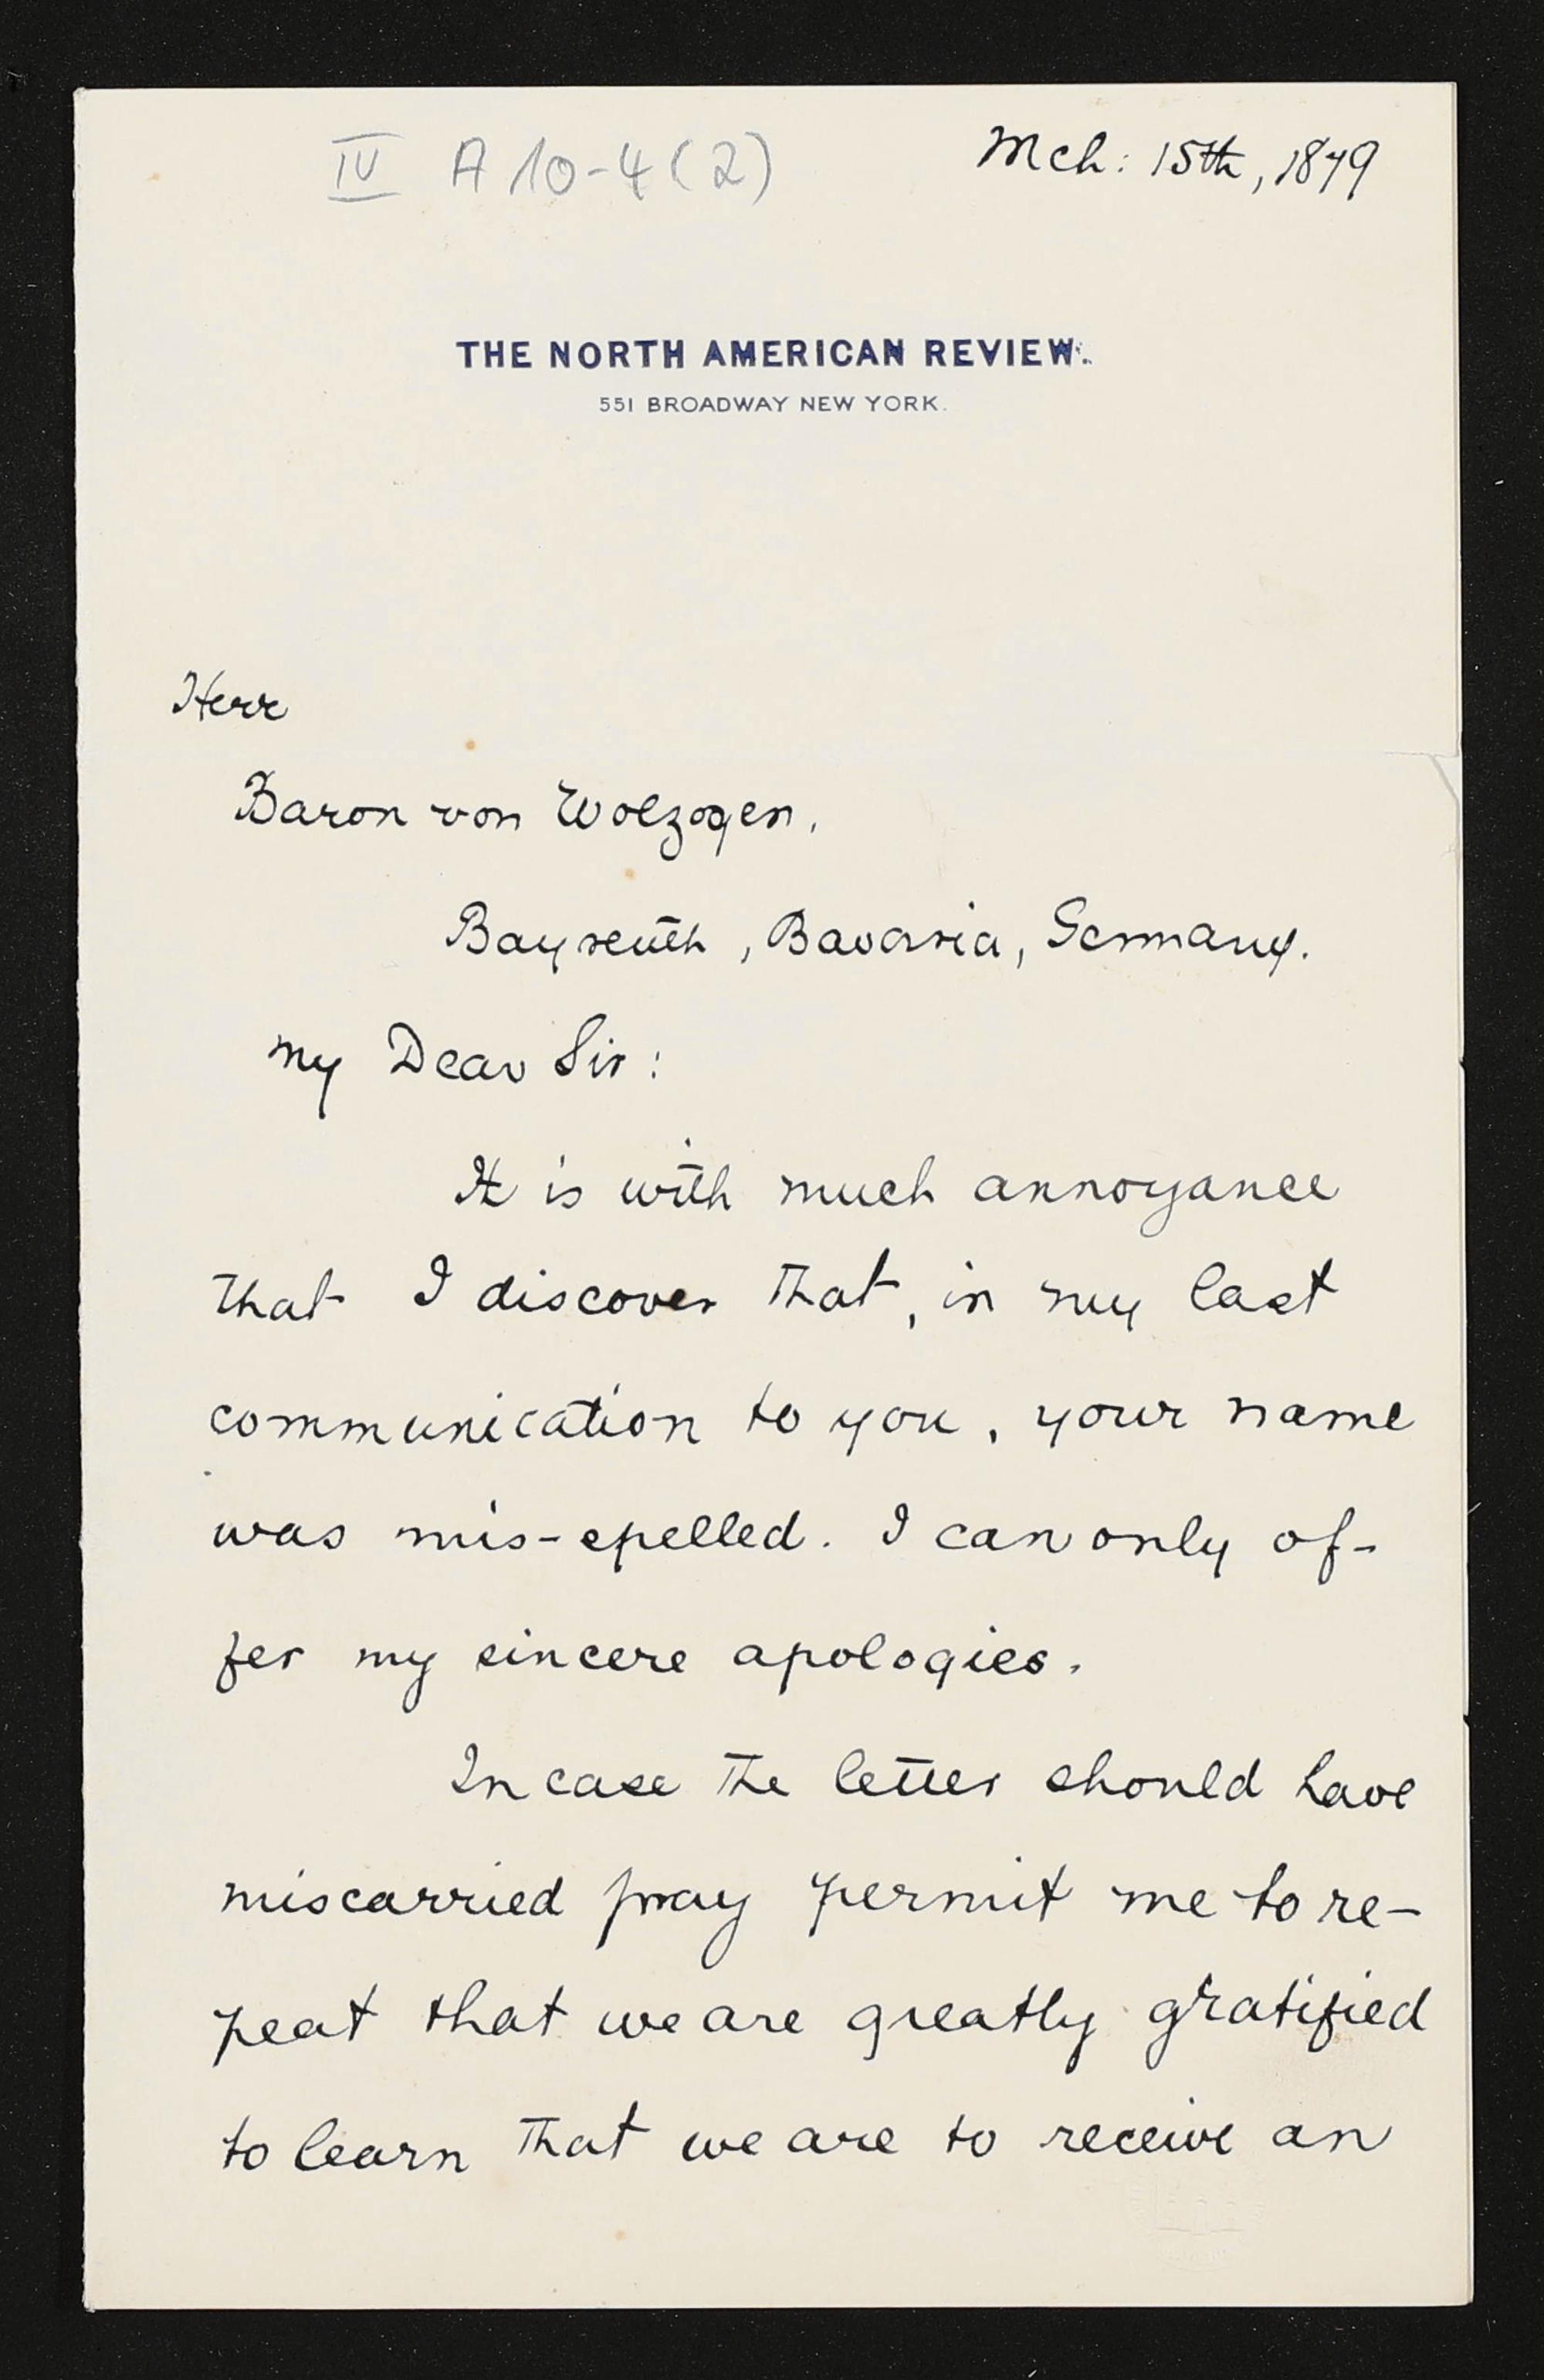 IV A 10-4(2)
Mch: 15th, 1879
THE NORTH AMERICAN REVIEW.
551 BROADWAY NEW YORK.
Herr
Baron von Wolzogen,
Bayreuth, Bavaria, Germany.
My Dear Sir:
It is with much annoyance
that I discover that, in my last
communication to you, your name
was mis-spelled. I can only of-
fer my sincere apologies.
In case the letter should have
miscarried pray permit me to re-
peat that we are greatly gratified
to learn that we are to receive an